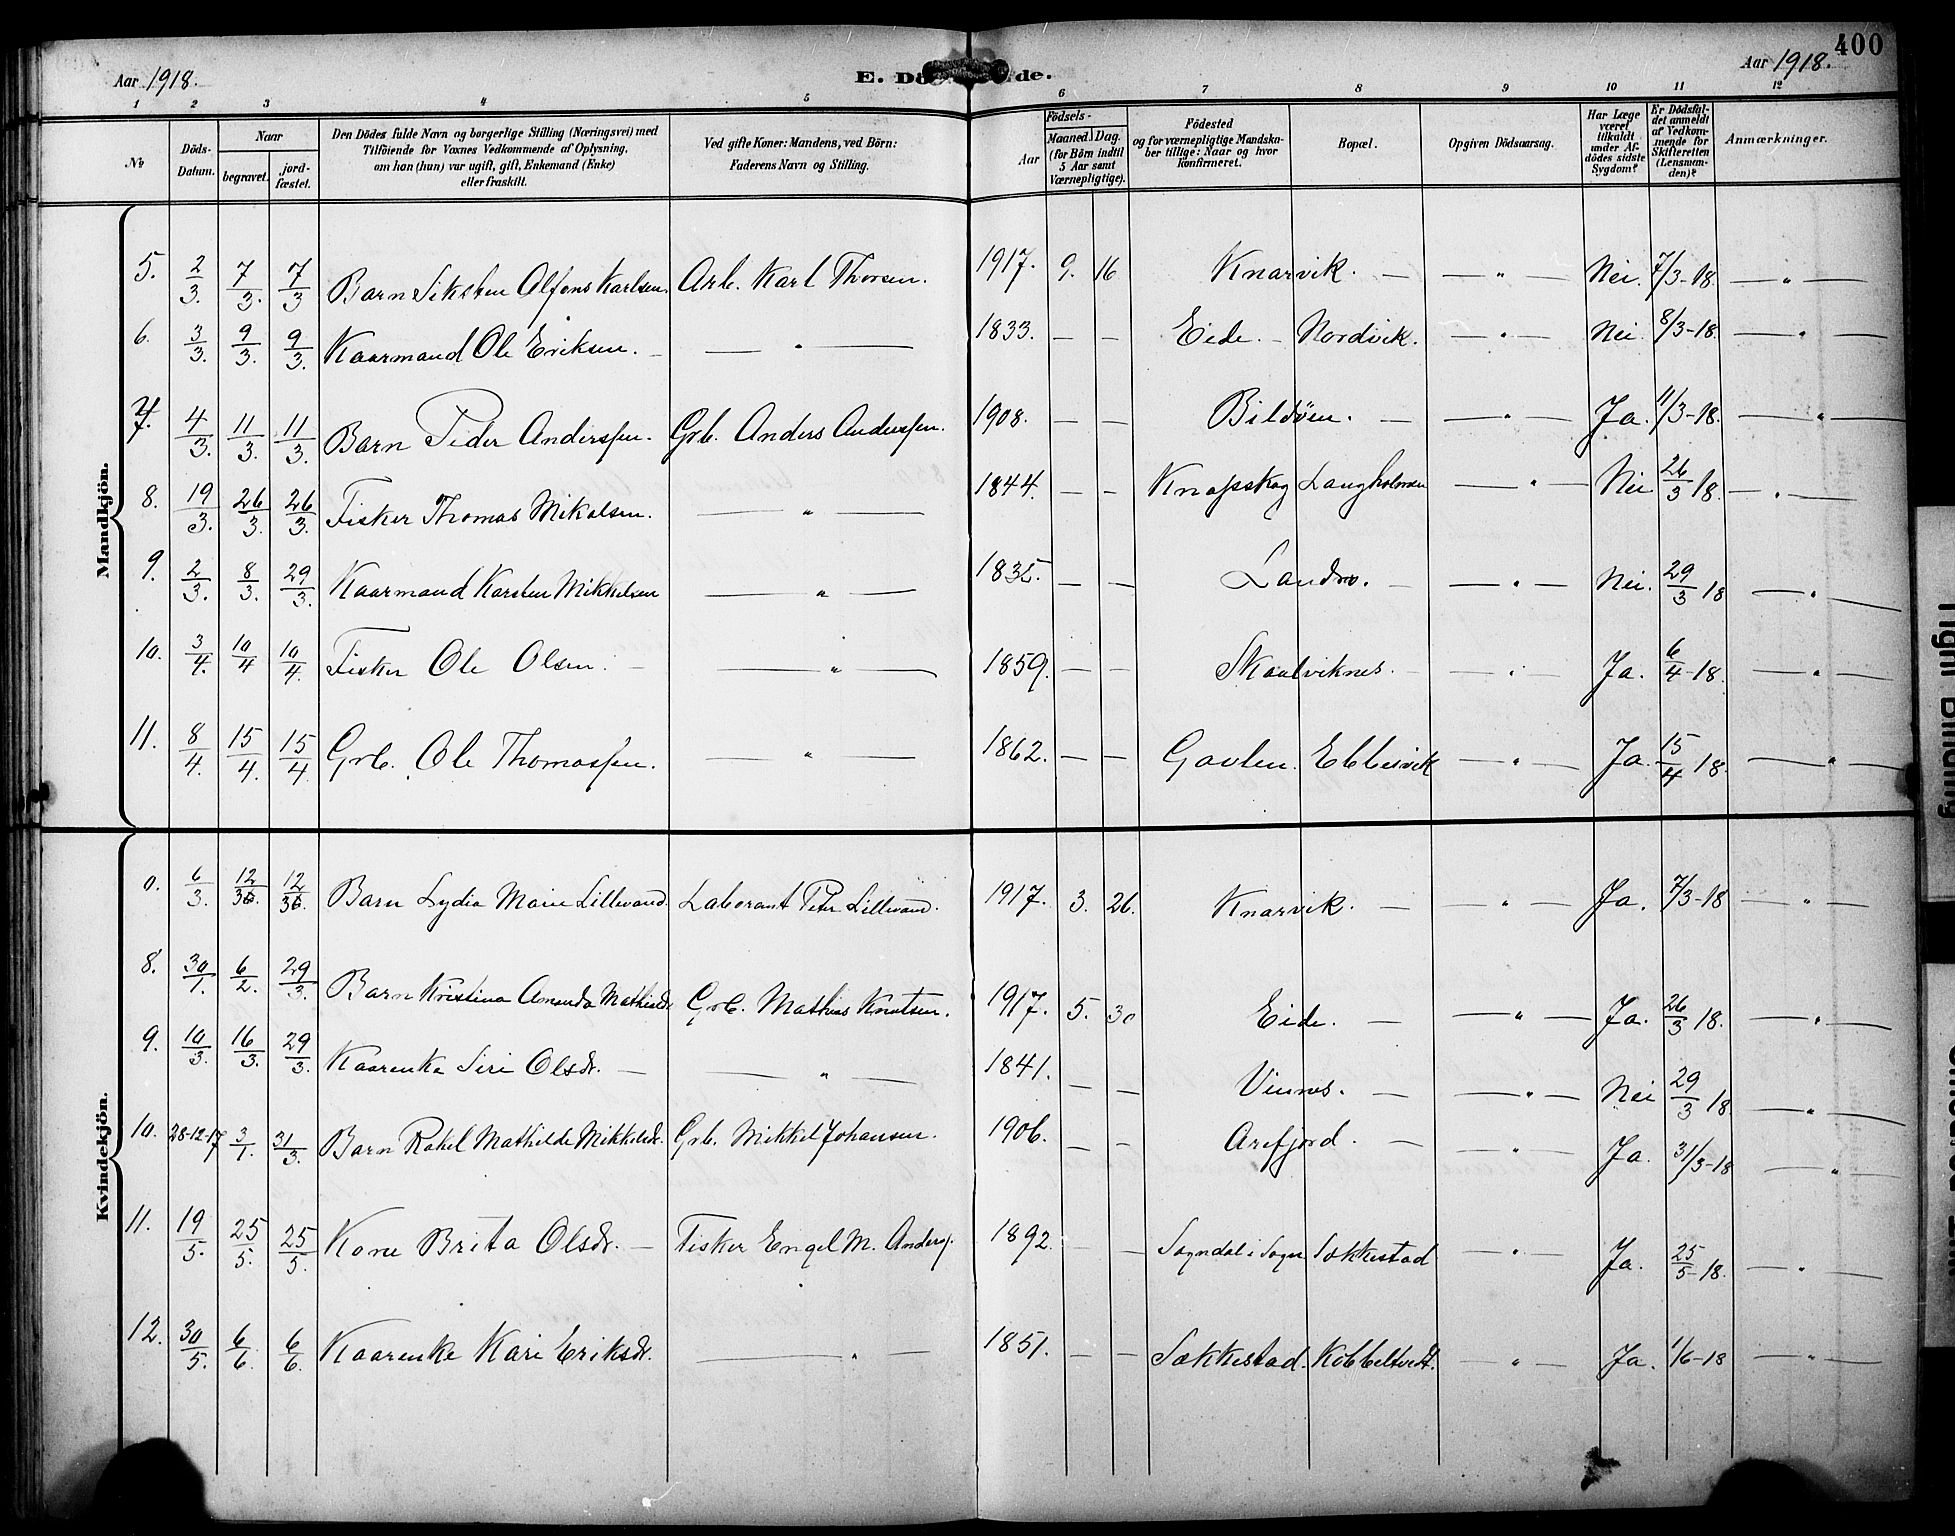 400
Aar 1918.
E. Dö de.
Aar 1918.
1 2 3 4 5 6 7 8 9 10 11 12
No
Döds-Datum.
Naar
begravet.
jord-fæstet.
Den Dödes fulde Navn og borgerlige Stilling (Næringsvei) med
Tilföiende for Voxnes Vedkommende af Oplysning,
om han (hun) var ugift, gift, Enkemand (Enke)
eller fraskilt.
Ved gifte Koner: Mandens, ved Börn:
Faderens Navn og Stilling.
Födsels-
Aar
Maaned. Dag.
(for Börn indtil
5 Aar samt
Værnepligtige).
Födested
og for værnepligtige Mandska-
ber tillige: Naar og hvor
konfirmeret.
Bopæl.
Opgiven Dödsaarsag.
Har Læge
været
tilkaldt
under Af-
dödes sidste
Sygdom?
Er Dödsfal-
det anmeldt
af Vedkom-
mende for
Skifteretten
(Lensman-
den)?
Anmærkninger.
Mandkjön.
5. 2/3. 7/3. 7/3 Barn Siksten Alfons Karlsen. Arb. Karl Thorsen. 1917. 9. 16 Knarvik. — — " — Nei. 7/3-18. — " —
6. 3/3. 9/3. 9/3. Kaarmand Ole Eriksen. — — " — 1833. — — Eide. — Nordvik. — " — Nei. 8/3-18. — " —
7. 4/3. 11/3. 11/3. Barn Peder Anderssen. Grb. Anders Anderssen. 1908. — — Bildöen. — — " — Ja. 11/3-18. — " —
8. 19/3. 26/3. 26/3. Fisker Thomas Mikalsen. — " — 1844. — — Knapskog Langholmen — " — Nei 26/3 18. — " —
9. 2/3. 8/3. 29/3. Kaarmand Karsten Mikkelsen — " — 1835. — — Landro. — — " — Nei. 29/3 18 — " —
10. 3/4. 10/4 10/4. Fisker Ole Olsen. — — " — 1859. — — Skaalviknes. — — " — Ja. 6/4-18. — " —
11. 8/4. 15/4. 15/4 Grb. Ole Thomassen. — " — 1862. — — Gavlen. Ebbesvik — " — Ja. 15/4 18. — " —
Kvindekjön.
0. 6/3. 12/3. 12/3. Barn Lydia Marie Lillevand. Laborant Peter Lillevand. 1917. 3. 26. Knarvik. — — " — Ja. 7/3-18 — " —
8. 30/1. 6/2. 29/3. Barn Kristina Amanda Mathisdr. Grb. Mathias Knutsen. 1917. 5. 30 Eide. — — " — Ja. 26/3 18. — " —
9. 10/3. 16/3. 29/3. Kaarenke Siri Olsdr. — — " — 1841. — — Vinnes. — — " — Nei 29/3 18 — " —
10. 28-12-17 3/1. 31/3. Barn Rakel Mathilde Mikkelsdr. Grb. Mikkel Johansen. 1906. — — Arefjord. — — " — Ja. 31/3-18 — " —
11. 19/5. 25/5. 25/5. Kone Brita Olsdr. — Fisker Engel M. Anders. 1892. — — Sogndal i Sogn Sekkestad — " — Ja. 25/5-18. — " —
12. 30/5. 6/6. 6/6. Kaarenke Kari Eriksdr. — " — 1851. — — Sekkestad. Kobbeltvedt. — " — Ja. 1/6-18 — " —